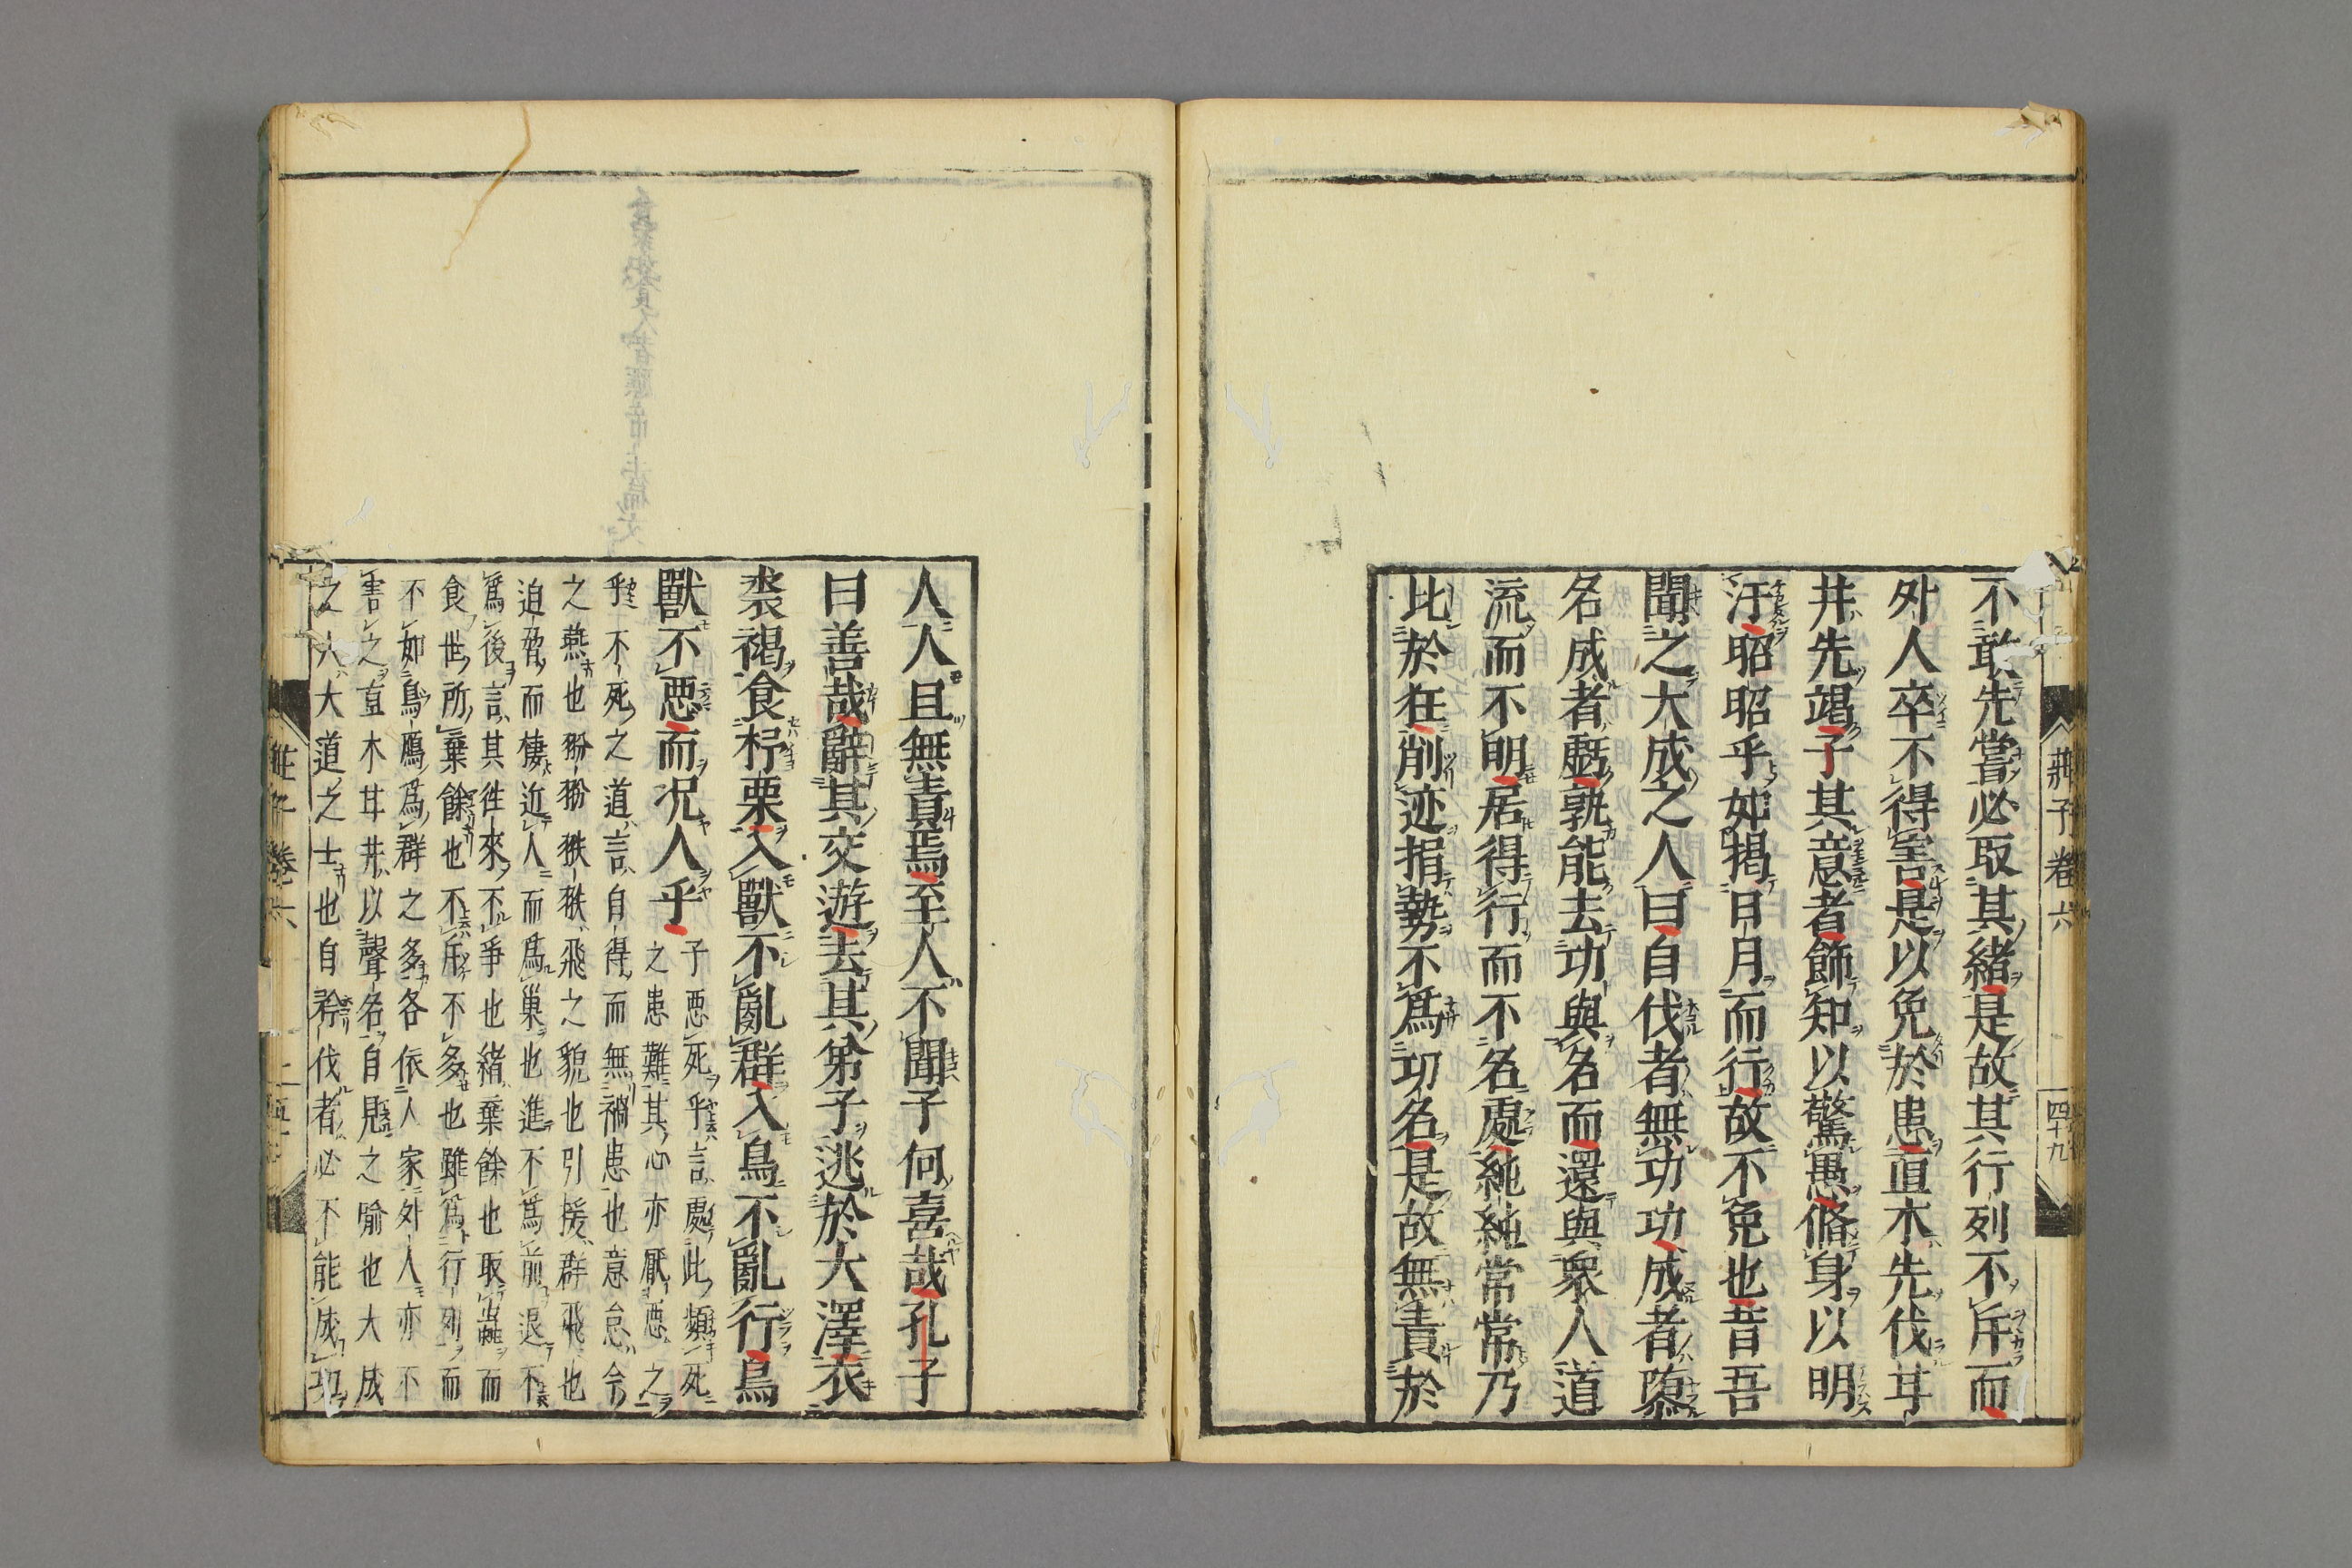 莊子卷六
四十九
不敢先嘗必取其緒是故其行列不斥而
外人卒不得害是以免於患直木先伐甘
井先竭子其意者飾知以驚愚脩身以明
汙昭昭乎如揭日月而行故不免也昔吾
聞之大成之人曰自伐者無功功成者墮
名成者虧孰能去功與名而還與衆人道
流而不明居得行而不名處純純常常乃
比於狂削迹捐勢不爲功名是故無責於
人人且無責焉至人不聞子何喜哉孔子
曰善哉辭其交遊去其弟子逃於大澤衣
裘褐食杼栗入獸不亂群入鳥不亂行鳥
獸不惡而况人乎
子惡死乎言處此頻死
之患難其心亦厭惡之
乎不死之道言自得而無禍患也意怠今
之燕也翂翂翐翐飛之貌也引援群飛也
迫脅而棲近人而爲巢也進不爲前退不
爲後言其徃來不爭也緒棄餘也取其而
食世所棄餘也不斥不多也雖爲行列而
不如鳥鴈爲群之多各依人家外人亦不
害之直木甘井以聲名自見之喻也大成
之人大道之士也自矜伐者必不能成功